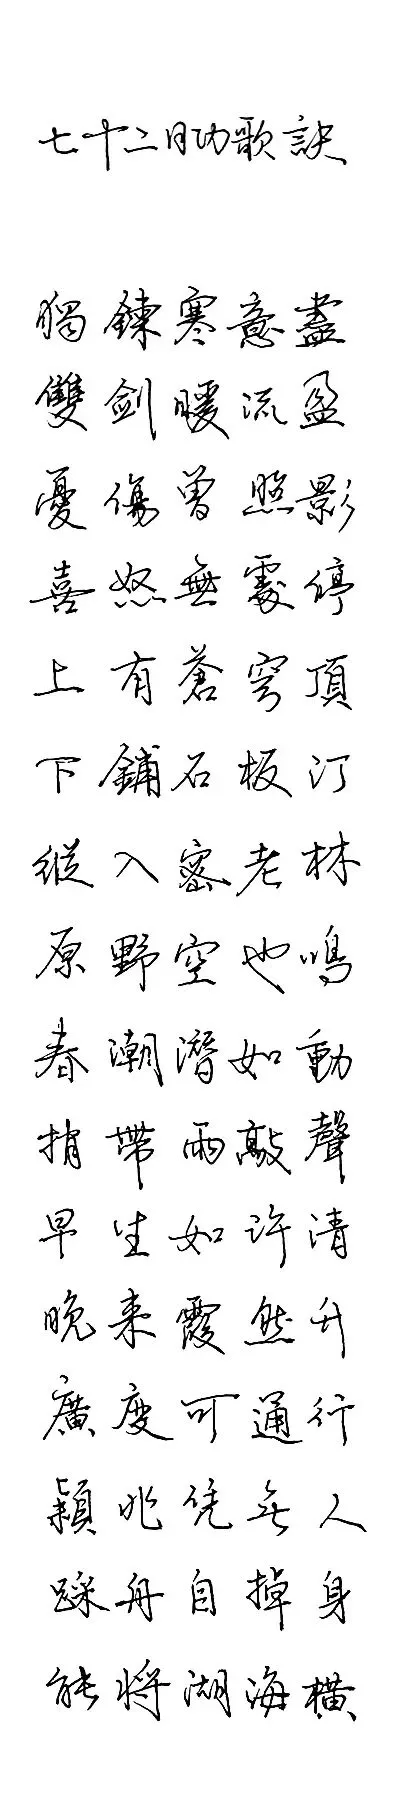 七十二月功歌訣
獨鍊寒意盡
雙劍暖流盈
憂傷曾照影
喜怒無處停
上有蒼穹頂
下鋪石板汀
縱入密老林
原野空也鳴
春潮潛如動
捎帶雨敲聲
早生如許清
晚來霞然升
廣度可通行
穎兆凭無人
踩舟自掉身
能將湖海橫